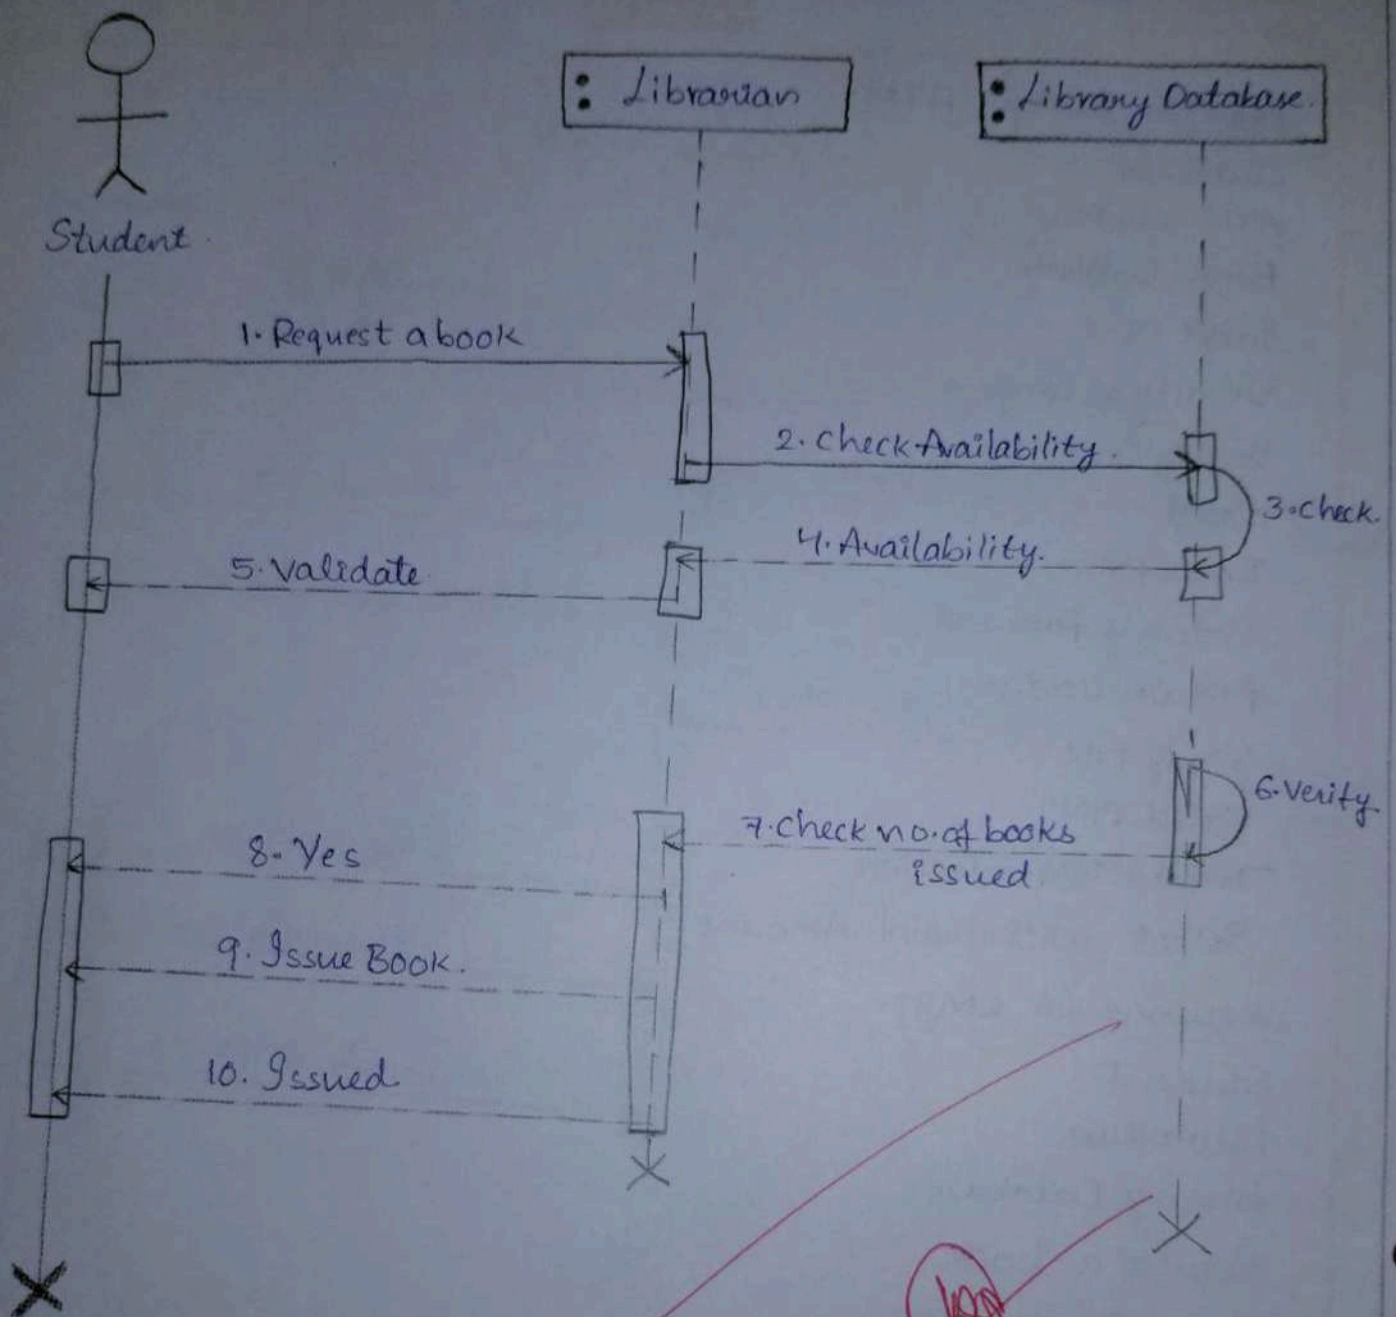 : Librarian
: Library Database.
Student
1. Request a book
2. Check Availability.
3. Check.
4. Availability.
5. Validate
6. Verify
7. Check no. of books
issued
8. Yes
9. Issue Book.
10. Issued